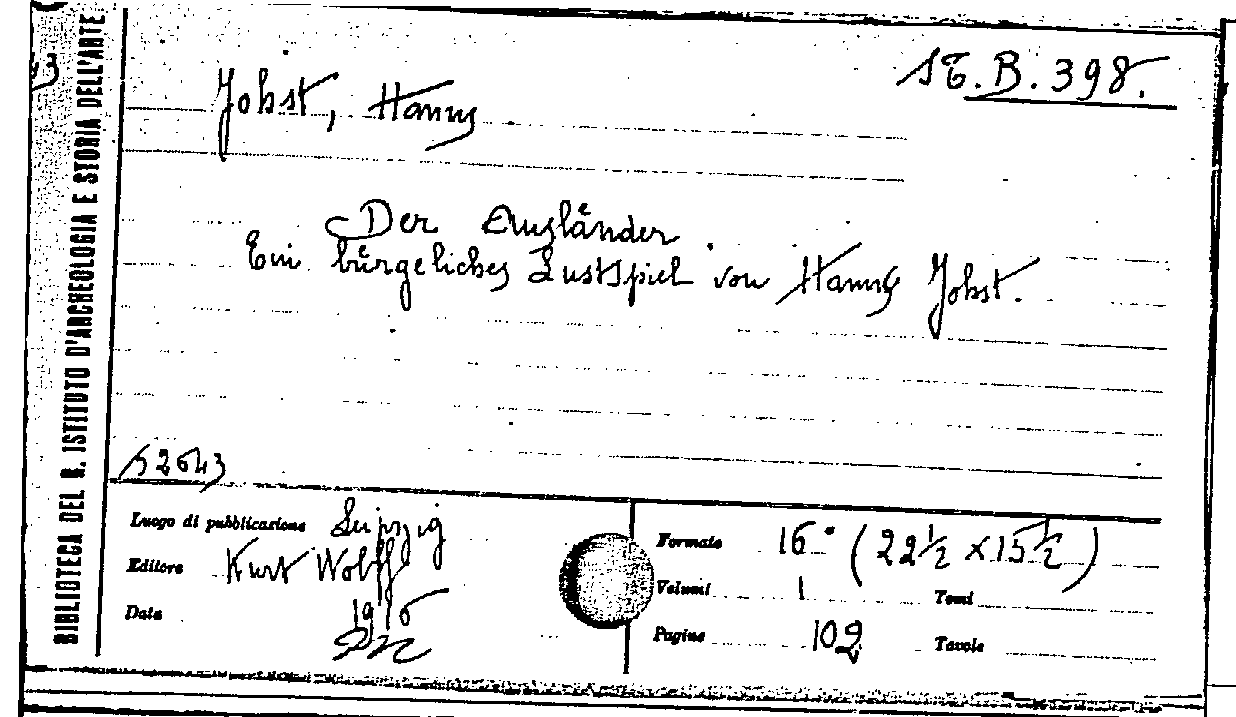 BIBLIOTECA DEL R. ISTITUTO D'ARCHEOLOGIA E STORIA DELL'ARTE
ST. B. 398.
Johst, Hanns
Der Ausländer.
Ein bürgeliches Lustspiel von Hanns Johst.
52643
Luogo di pubblicazione Leipzig
Editore Kurt Wolff
Data 1916
Formato 16° (22½ x 15½)
Volumi 1 Tomi
Pagine 102 Tavole